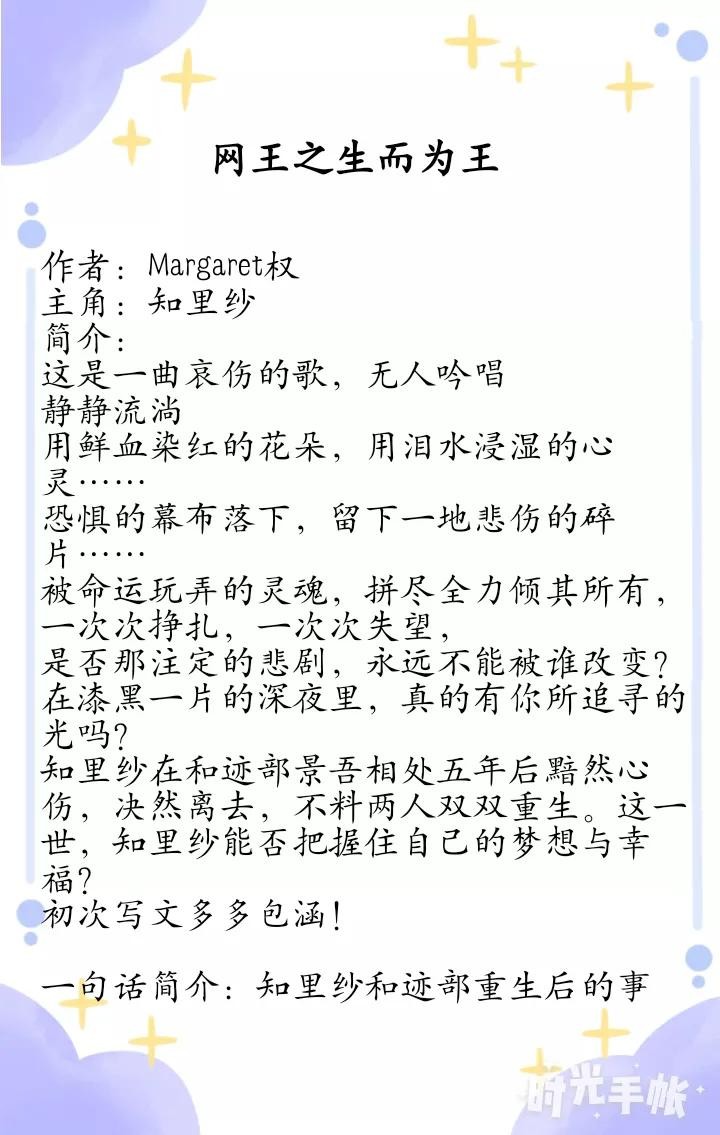 网王之生而为王
作者：Margaret权
主角：知里纱
简介：
这是一曲哀伤的歌，无人吟唱
静静流淌
用鲜血染红的花朵，用泪水浸湿的心
灵……
恐惧的幕布落下，留下一地悲伤的碎
片……
被命运玩弄的灵魂，拼尽全力倾其所有，
一次次挣扎，一次次失望，
是否那注定的悲剧，永远不能被谁改变？
在漆黑一片的深夜里，真的有你所追寻的
光吗？
知里纱在和迹部景吾相处五年后黯然心
伤，决然离去，不料两人双双重生。这一
世，知里纱能否把握住自己的梦想与幸
福？
初次写文多多包涵！
一句话简介：知里纱和迹部重生后的事
时光手帐